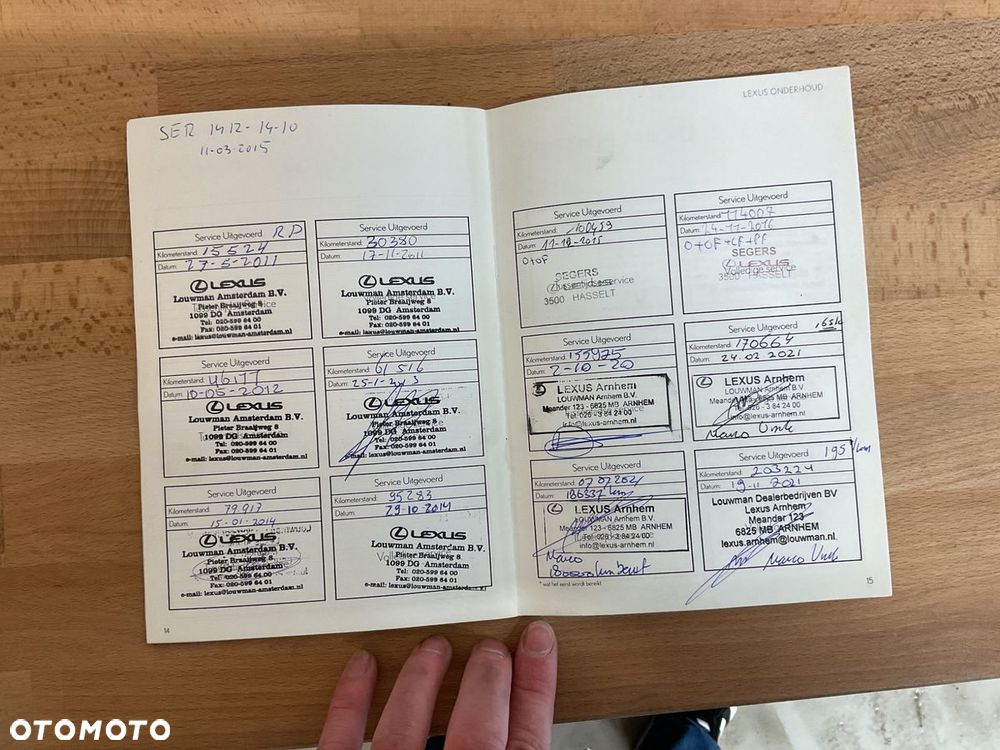 SER 1412-14-10
11-03-2015
Service Uitgevoerd RD
Kilometerstand: 15524
Datum: 27-5-2011
LEXUS
Louwman Amsterdam B.V.
Pieter Braaijweg 8
1099 DG Amsterdam
Tel: 020-599 64 00
Fax: 020-599 64 01
e-mail: lexus@louwman-amsterdam.nl
Service Uitgevoerd
Kilometerstand: 30380
Datum: 17-11-2011
LEXUS
Louwman Amsterdam B.V.
Pieter Braaijweg 8
1099 DG Amsterdam
Tel: 020-599 64 00
Fax: 020-599 64 01
e-mail: lexus@louwman-amsterdam.nl
Service Uitgevoerd
Kilometerstand: 46177
Datum: 10-05-2012
LEXUS
Louwman Amsterdam B.V.
Pieter Braaijweg 8
1099 DG Amsterdam
Tel: 020-599 64 00
Fax: 020-599 64 01
e-mail: lexus@louwman-amsterdam.nl
Service Uitgevoerd
Kilometerstand: 61516
Datum: 25-1-2013
LEXUS
Louwman Amsterdam B.V.
Pieter Braaijweg 8
1099 DG Amsterdam
Tel: 020-599 64 00
Fax: 020-599 64 01
e-mail: lexus@louwman-amsterdam.nl
Service Uitgevoerd
Kilometerstand: 79917
Datum: 15-01-2014
LEXUS
Louwman Amsterdam B.V.
Pieter Braaijweg 8
1099 DG Amsterdam
Tel: 020-599 64 00
Fax: 020-599 64 01
e-mail: lexus@louwman-amsterdam.nl
Service Uitgevoerd
Kilometerstand: 95283
Datum: 29-10-2014
LEXUS
Louwman Amsterdam B.V.
Pieter Braaijweg 8
1099 DG Amsterdam
Tel: 020-599 64 00
Fax: 020-599 64 01
e-mail: lexus@louwman-amsterdam.nl
14
LEXUS ONDERHOUD
Service Uitgevoerd
Kilometerstand: 100459
Datum: 11-12-2015
O+OF
SEGERS
Tussentijdse service
3500 HASSELT
Service Uitgevoerd
Kilometerstand: 114007
Datum: 24-11-2016
O+OF+CF+PF
SEGERS
LEXUS
Volledige service
3500 HASSELT
Service Uitgevoerd
Kilometerstand: 155975
Datum: 2-10-20
LEXUS Arnhem
LOUWMAN Arnhem B.V.
Meander 123 - 6825 MB ARNHEM
Tel: 026 - 3 84 24 00
info@lexus-arnhem.nl
Service Uitgevoerd 165k
Kilometerstand: 170664
Datum: 24.02 2021
LEXUS Arnhem
LOUWMAN Arnhem B.V.
Meander 123 - 6825 MB ARNHEM
Tel: 026 - 3 84 24 00
info@lexus-arnhem.nl
Marco
Service Uitgevoerd
Kilometerstand: 07 07 2021
Datum: 186837 km
LEXUS Arnhem
LOUWMAN Arnhem B.V.
Meander 123 - 6825 MB ARNHEM
Tel: 026 - 3 84 24 00
info@lexus-arnhem.nl
Marco
180000 km beurt
Service Uitgevoerd 195 km
Kilometerstand: 203224
Datum: 19-11 2021
Louwman Dealerbedrijven BV
Lexus Arnhem
Meander 123
6825 MB ARNHEM
lexus.arnhem@louwman.nl
Marco
* wat het eerst wordt bereikt
15
OTOMOTO